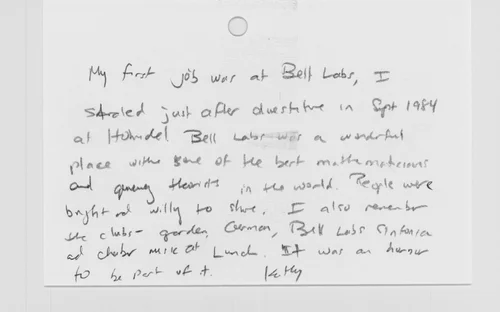 My first job was at Bell Labs, I
started just after divestiture in Sept 1984
at Holmdel Bell Labs was a wonderful
place with some of the best mathematicians
and queuing theorists in the world. People were
bright and willing to share. I also remember
the clubs - garden, German, Bell Labs Sinfonia
and chamber music at Lunch. It was an honour
to be part of it. Kathy